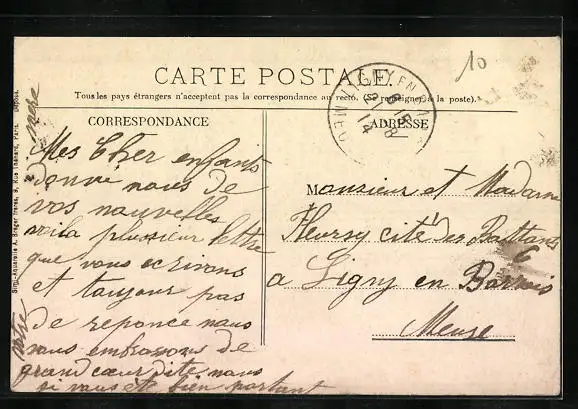 10
CARTE POSTALE
Tous les pays étrangers n'acceptent pas la correspondance au recto. (Se renseigner à la poste).
CORRESPONDANCE
ADRESSE
Mes Cher enfants
donne nous de
vos nouvelles
voila plusieur lettre
que vous ecrivons
et toujour pas
de reponce nous
vous embrassons de
grand cœur dite nous
si vous ete bien portant
votre
mere
Monsieur et Madame
Fleursy cité des Battants
6
a Ligny en Barrois
Meuse
Simi-Aquarelle A. Breger frères, 9, Rue Thénard, Paris. Déposé.